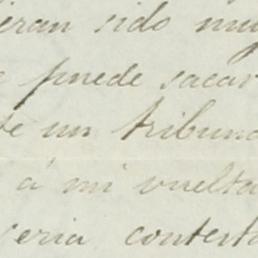 eran sido muy
puede sacar
te un tribuna
á mi vuelta
ceria contesta